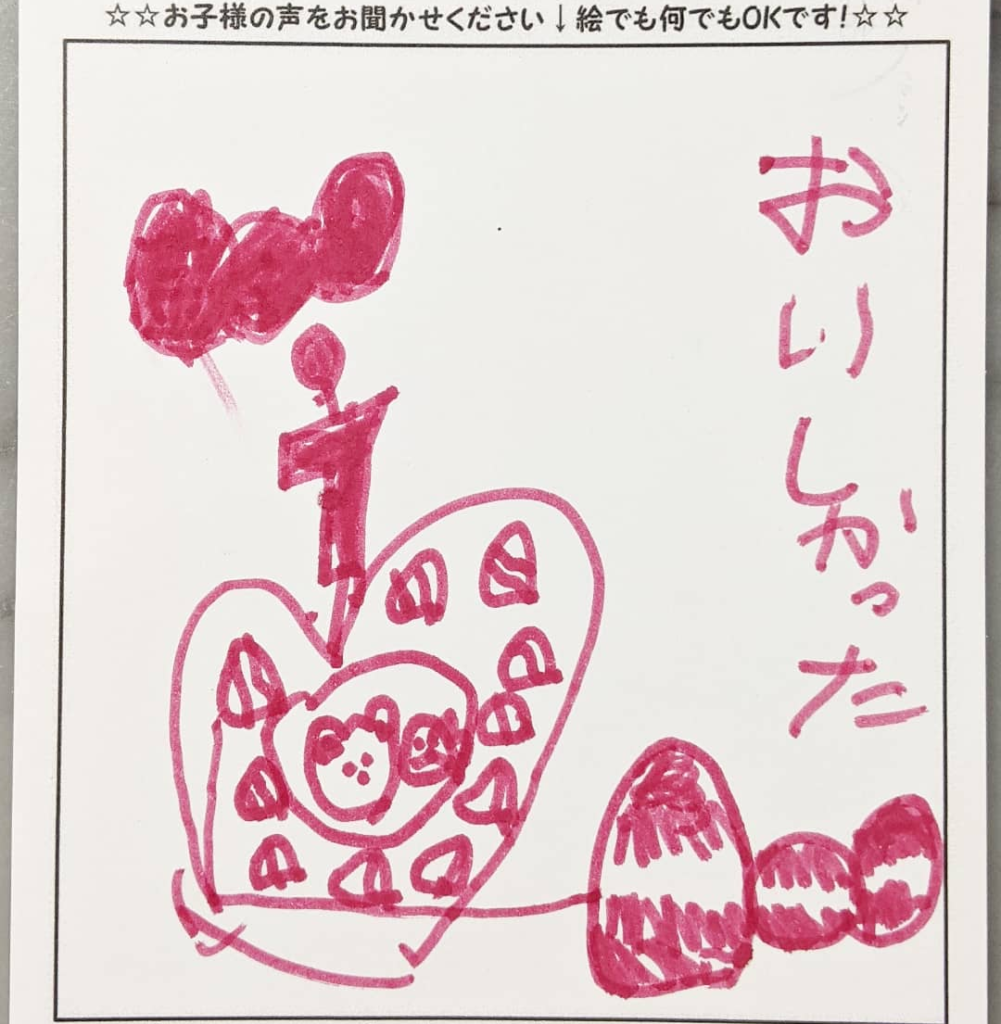 ☆☆お子様の声をお聞かせください↓絵でも何でもOKです!☆☆
おいしかった